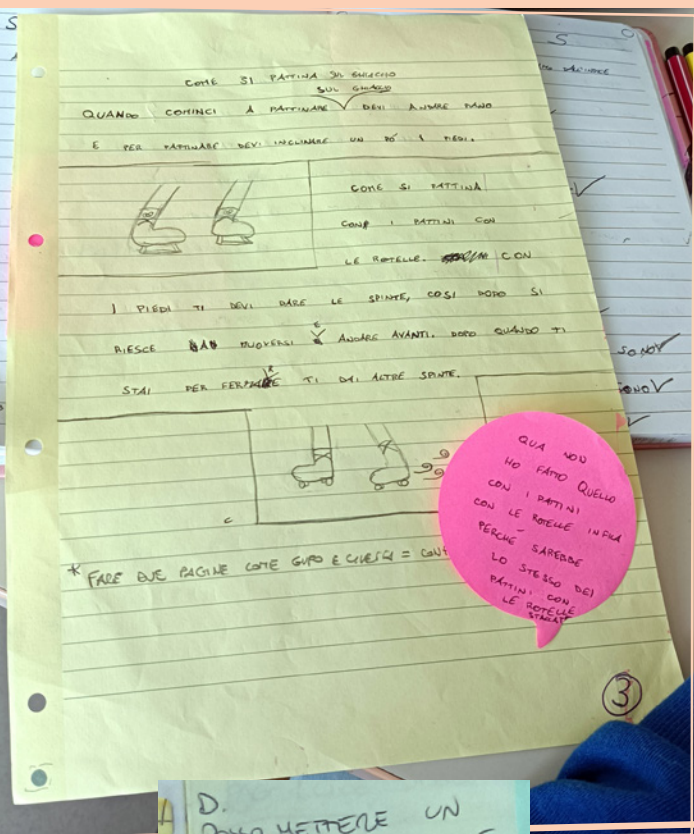 COME SI PATTINA SUL GHIACCIO
SUL GHIACCIO
QUANDO COMINCI A PATTINARE DEVI ANDARE PIANO
E PER PATTINARE DEVI INCLINARE UN PÓ I PIEDI.
COME SI PATTINA
CON I PATTINI CON
LE ROTELLE. CON
I PIEDI TI DEVI DARE LE SPINTE, COSI DOPO SI
RIESCE A MUOVERSI E ANDARE AVANTI. DOPO QUANDO TI
STAI PER FERMARE TI DAI ALTRE SPINTE.
* FARE DUE PAGINE COME GUFO E = CON
QUA NON
HO FATTO QUELLO
CON I PATTINI
CON LE ROTELLE IN FILA
PERCHÉ SAREBBE
LO STESSO DEI
PATTINI CON
LE ROTELLE
3
S
S
SONO
SONO
D.
METTERE UN